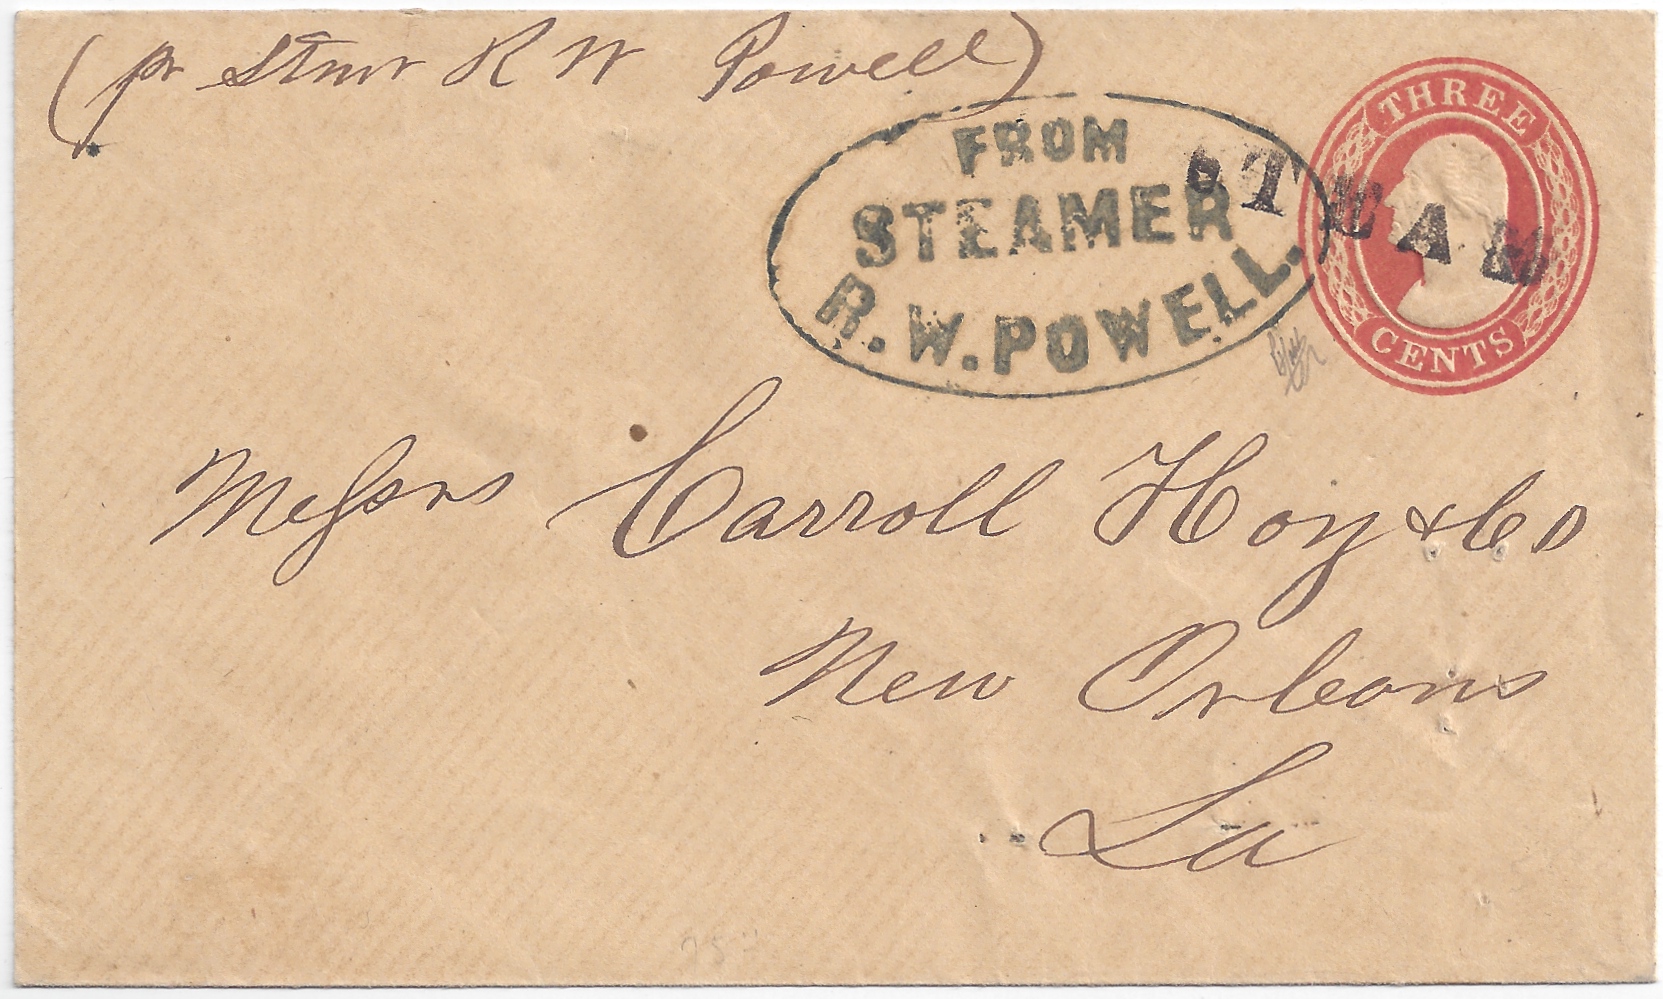 (pr Stmr R W Powell)
FROM
STEAMER
R. W. POWELL.
STEAM
THREE
CENTS
Messrs Carroll Hoy & Co
New Orleans
La